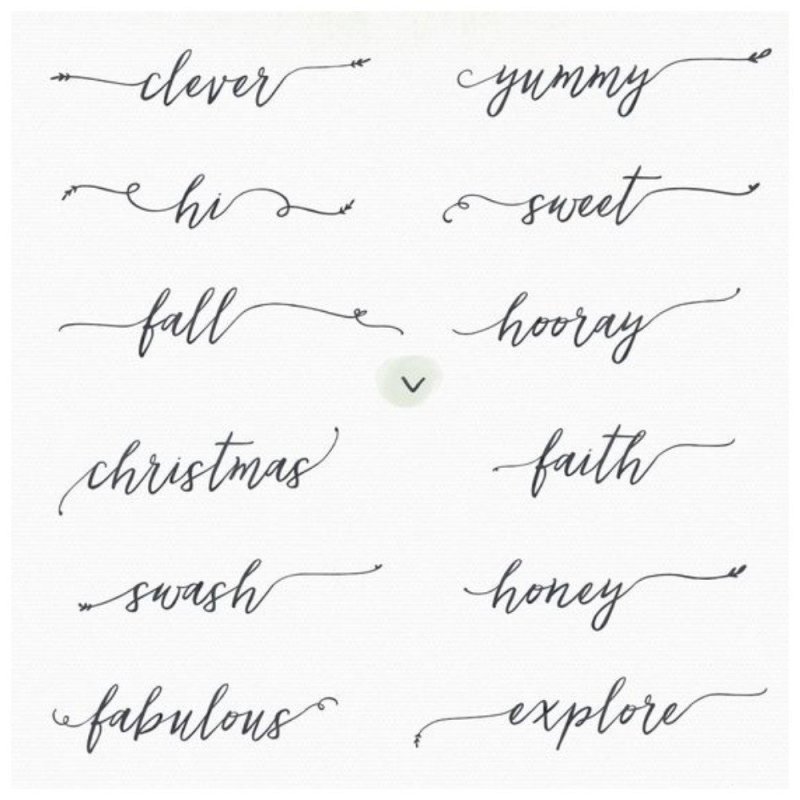 clever yummy
hi sweet
fall hooray
christmas faith
swash honey
fabulous explore